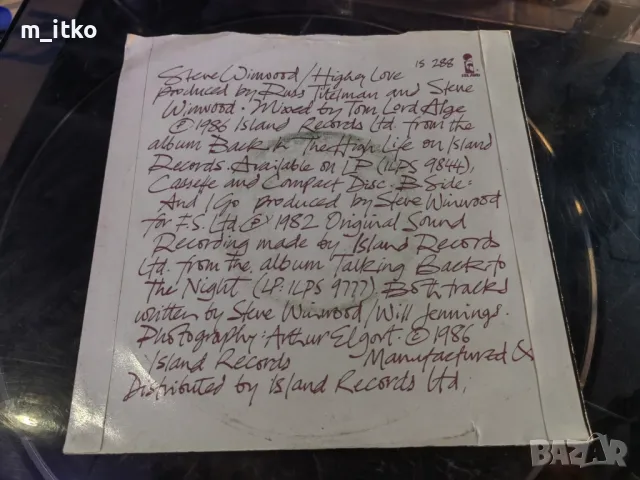 m_itko
IS 288
ISLAND
Steve Winwood/Higher Love
produced by Russ Titelman and Steve
Winwood. Mixed by Tom Lord Alge
℗ 1986 Island Records Ltd. from the
album Back in The High Life on Island
Records. Available on LP (ILPS 9844),
Cassette and Compact Disc. B Side:
And I Go produced by Steve Winwood
for F.S. Ltd ℗ 1982 Original Sound
Recording made by Island Records
Ltd. from the album Talking Back to
The Night (LP: ILPS 9777) Both tracks
written by Steve Winwood/Will Jennings.
Photography: Arthur Elgort. © 1986
Island Records Manufactured &
Distributed by Island Records Ltd.
BAZAR